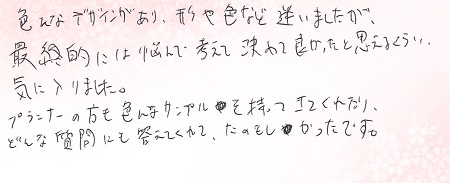 色んなデザインがあり、形や色など迷いましたが、
最終的には悩んで考えて決めて良かったと思えるくらい、
気に入りました。
プランナーの方も色んなサンプルを持って来てくれたり、
どんな質問にも答えてくれて、たのもしかったです。